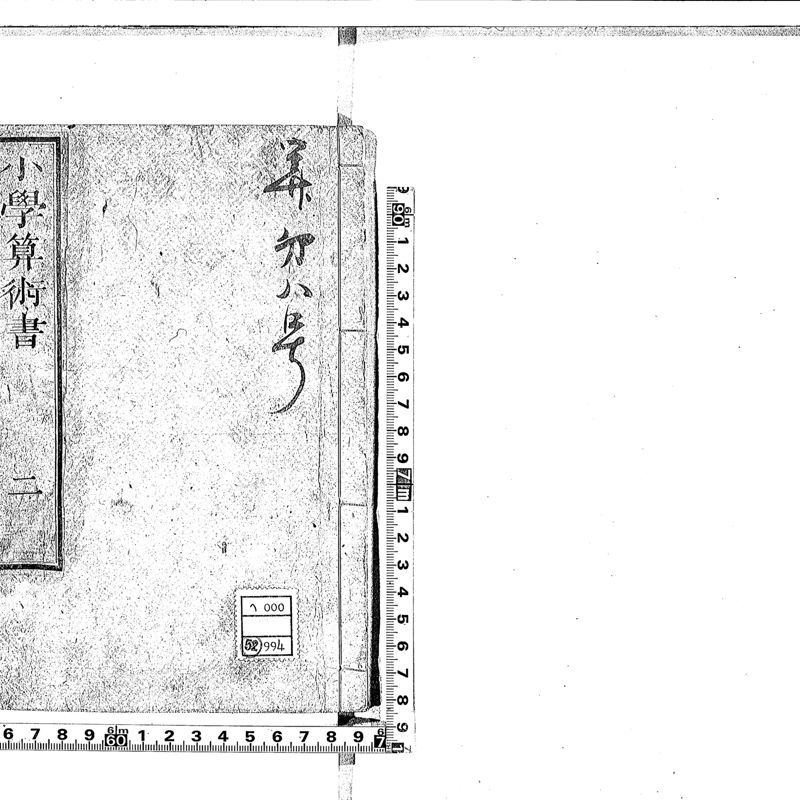 号
小學算術書
二
ヘ 000
52 994
6 7 8 9 60 1 2 3 4 5 6 7 8 9
1 2 3 4 5 6 7 8 9
1 2 3 4 5 6 7 8 9